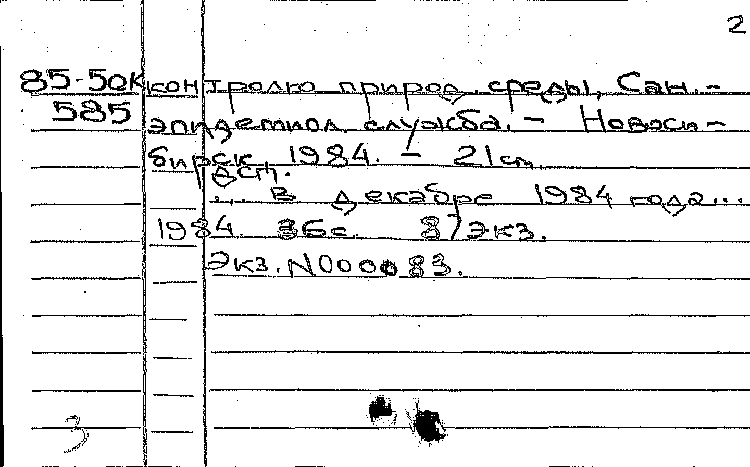 2
85-50К контролю природ. среды, Сан.-
585 эпидемиол. служба. - Новоси-
бирск, 1984. - 21 см.
ДСП.
... В декабре 1984 года...
1984. 36с. 87экз.
Экз. N000083.
3